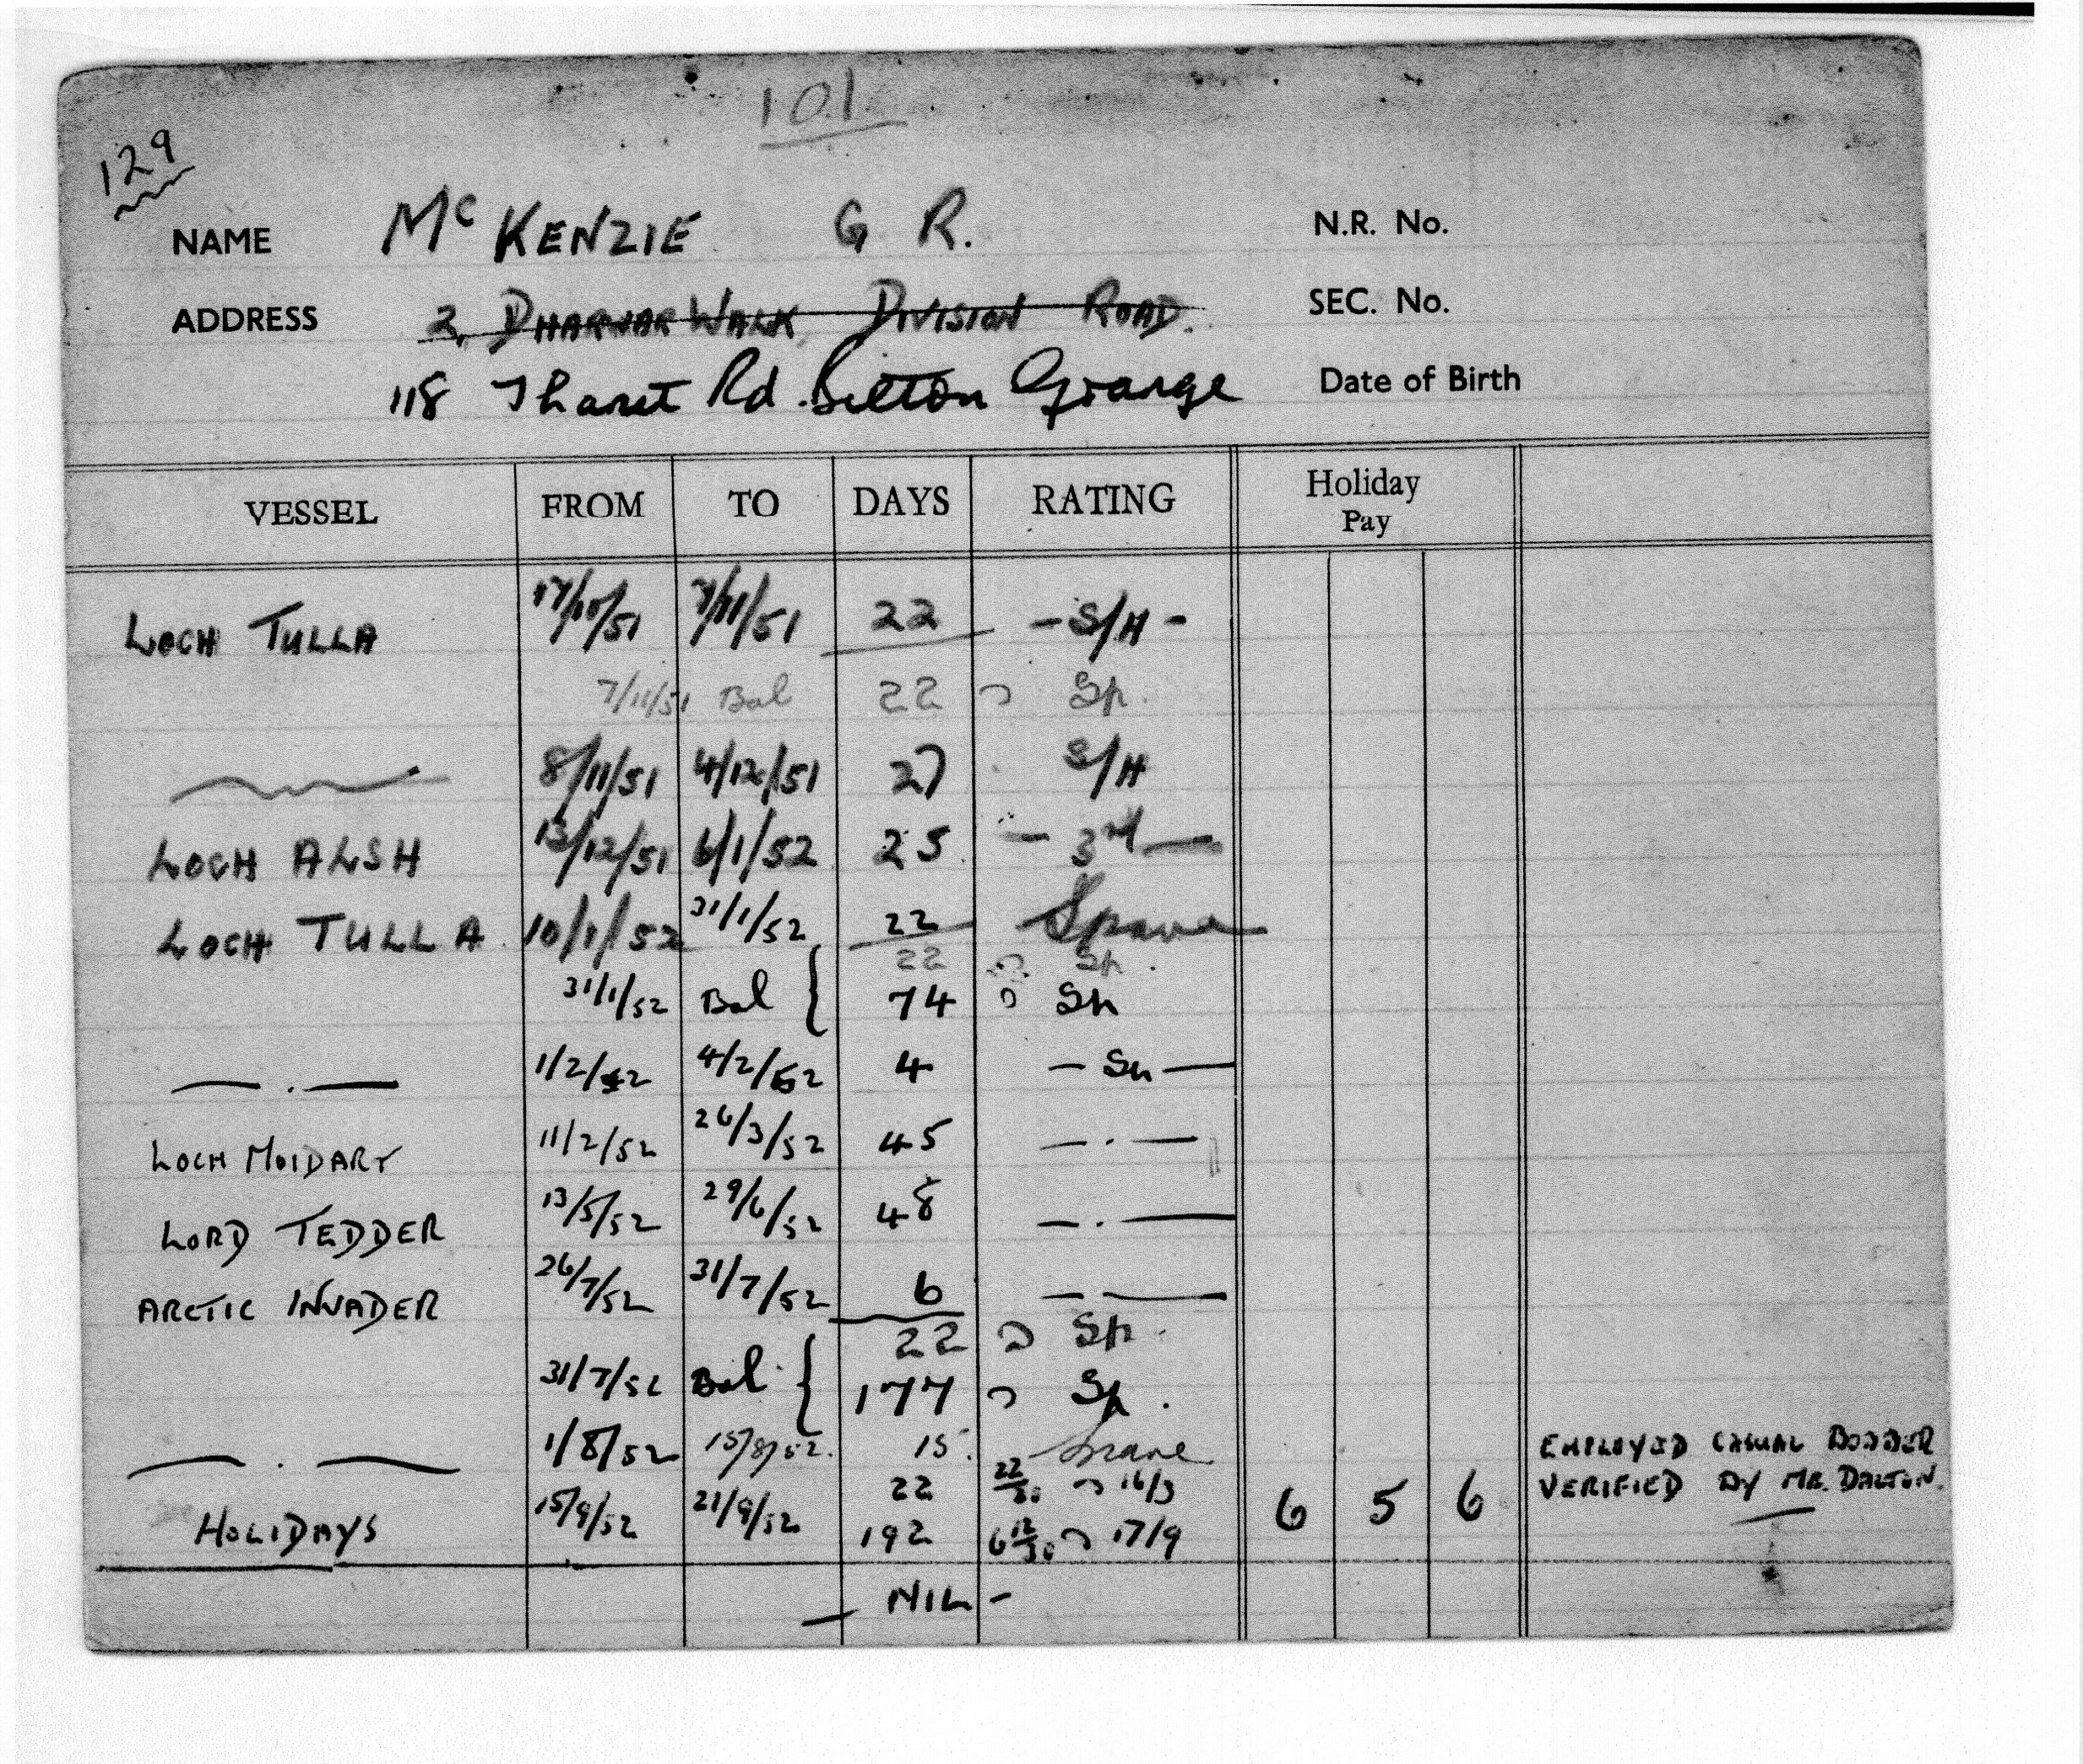 101
129
NAME McKENZIE G R. N.R. No.
ADDRESS 2, DHARWAR WALK, DIVISION ROAD. SEC. No.
118 Thanet Rd. Bilton Grange Date of Birth
VESSEL FROM TO DAYS RATING Holiday Pay
LOCH TULLA 17/10/51 7/11/51 22 - S/H -
7/11/51 Bal 22 Sp.
8/11/51 4/12/51 27 S/H
LOCH ALSH 13/12/51 6/1/52 25 - 3rd -
LOCH TULLA 10/1/52 31/1/52 22 Spare
22 Sp.
31/1/52 Bal { 74 Sp
— . — 1/2/52 4/2/52 4 - Sp -
LOCH MOIDART 11/2/52 26/3/52 45 — . —
LORD TEDDER 13/5/52 29/6/52 48 — . —
ARCTIC INVADER 26/7/52 31/7/52 6 — . —
22 Sp.
31/7/52 Bal { 177 Sp.
— . — 1/8/52 15/8/52. 15 Spare EMPLOYED CASUAL BOBBER
22 22/30 16/3 VERIFIED BY MR. DALTON.
HOLIDAYS 15/9/52 21/9/52 192 6 12/30 17/9 6 5 6
- NIL -